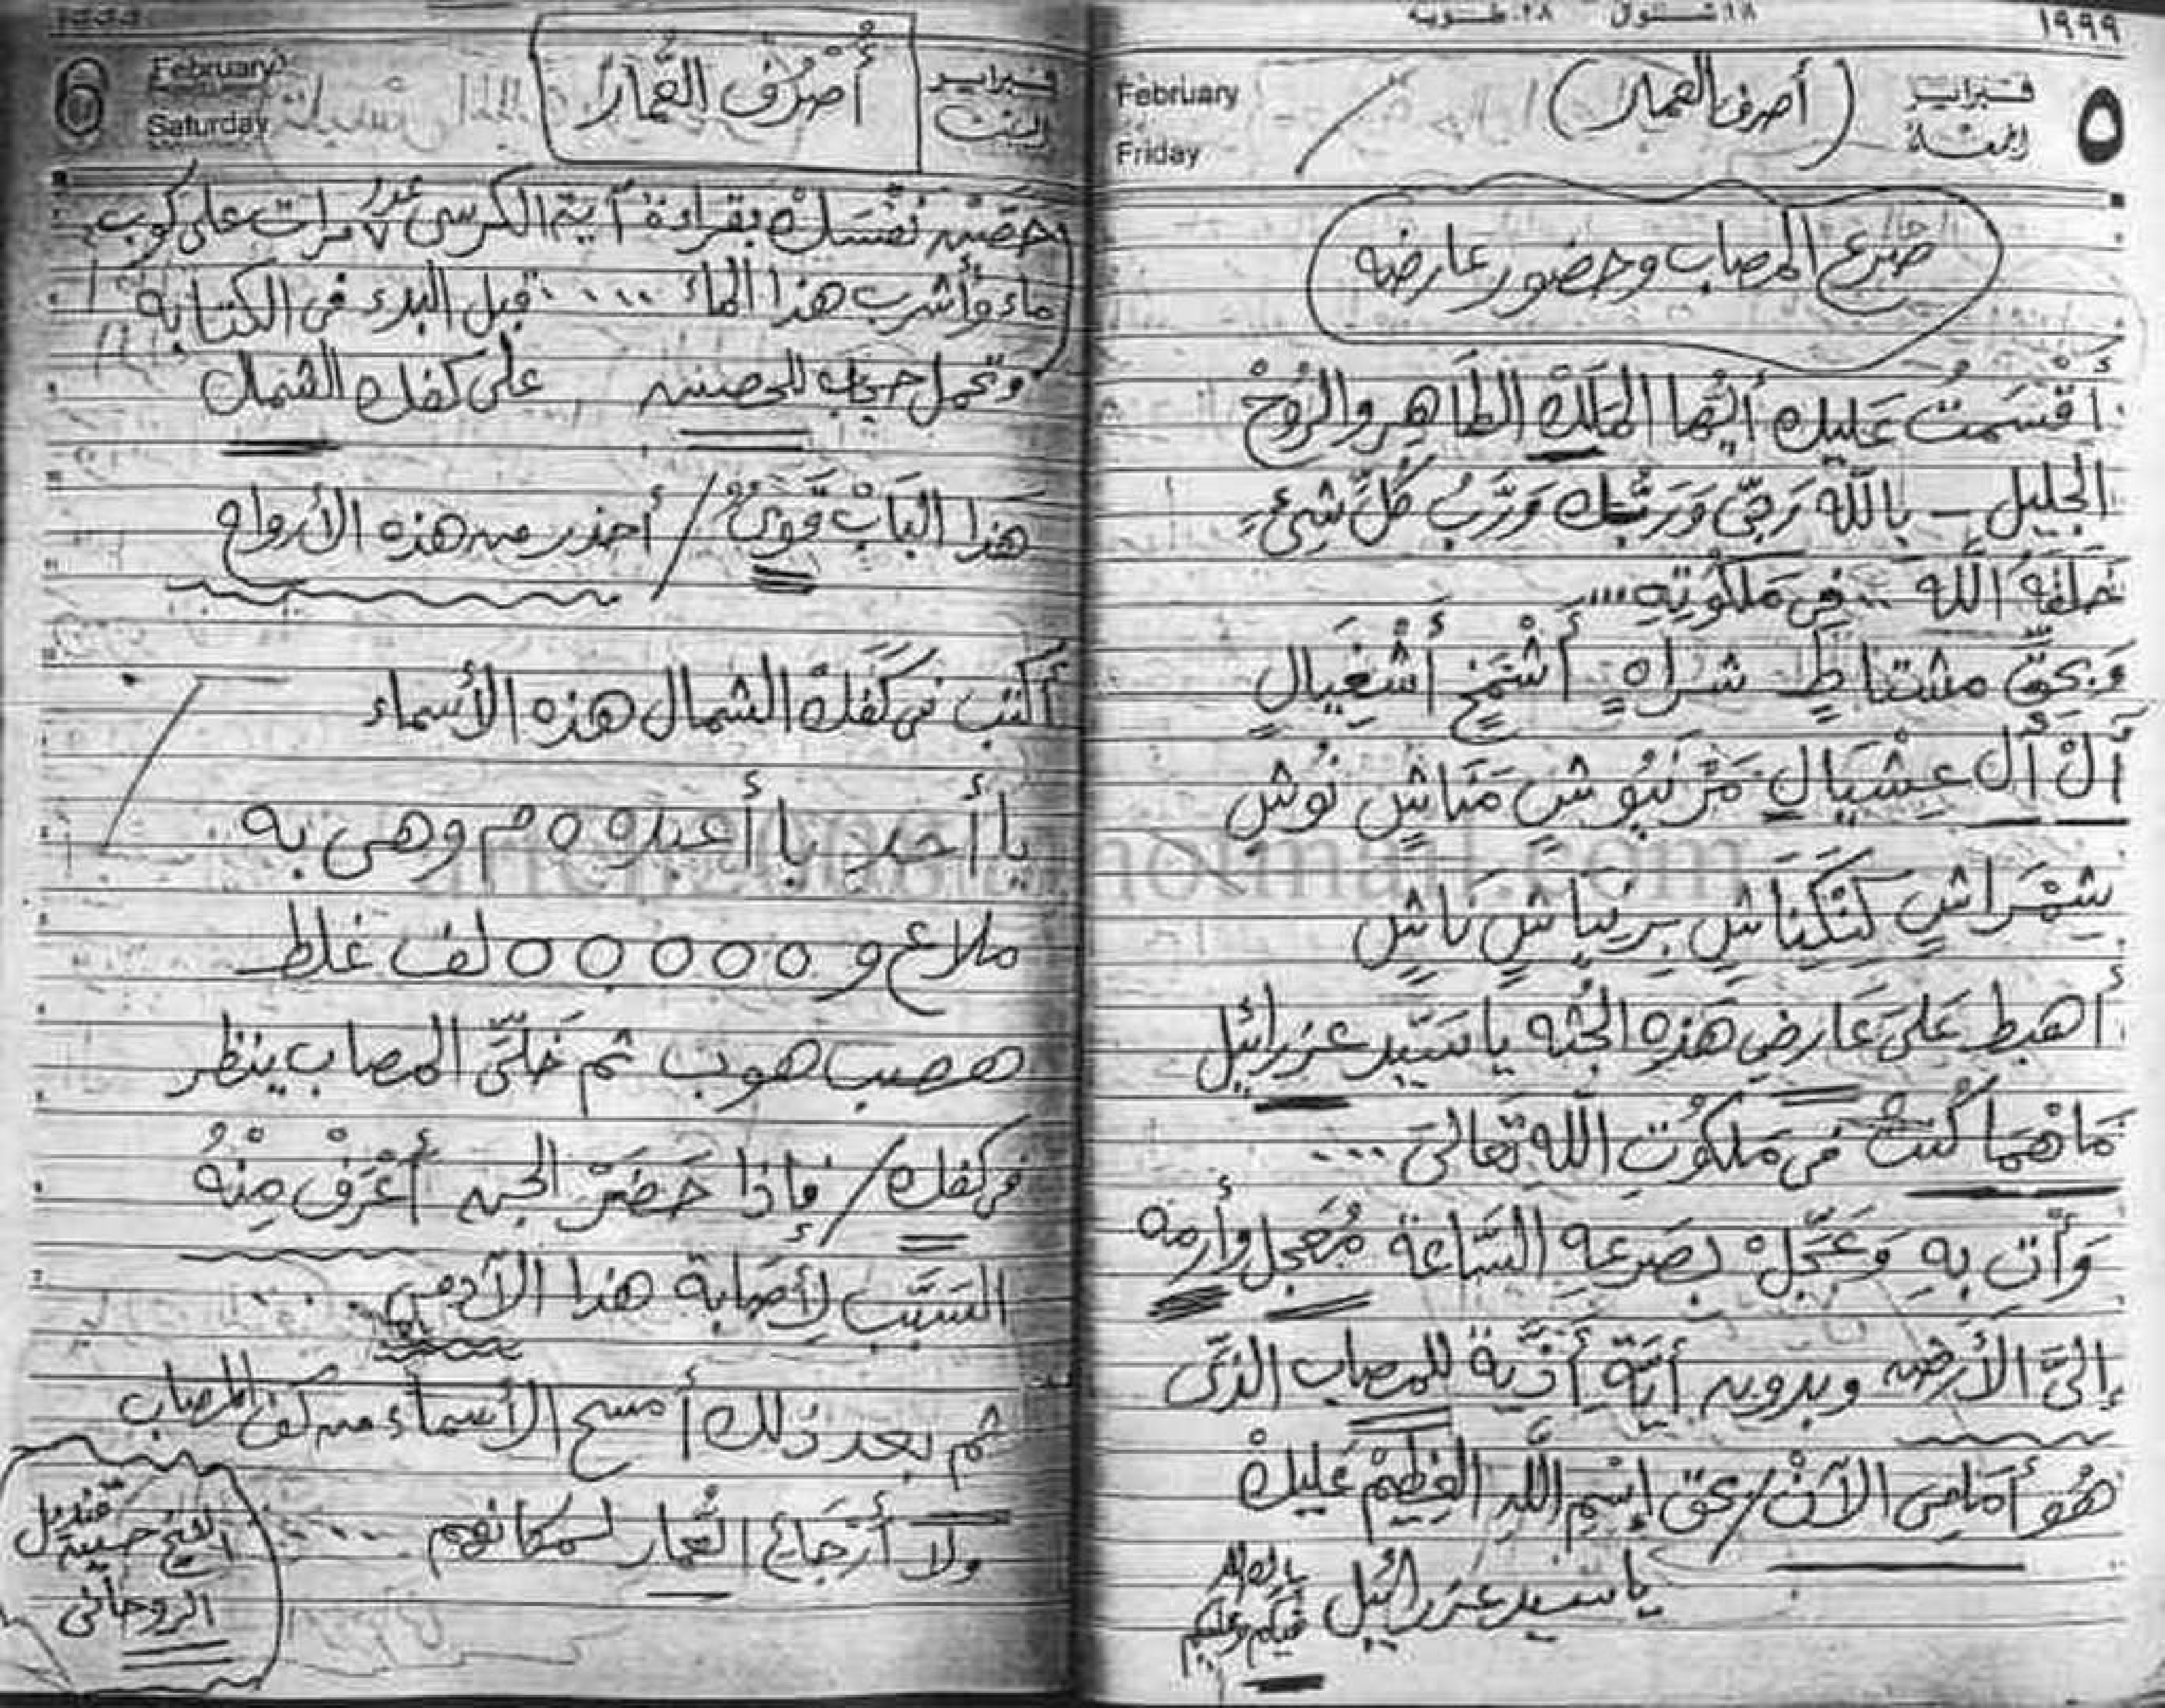 ١٩٩٩
١٨ شوال
٢٨ طوبة
٥
فبراير
الجمعة
(أصرف العمار)
February
Friday
صرع المصاب وحضور عارضه
أَقْسَمتُ عَليك أيُّها المَلَكْ الطَاهِر والرُوحْ
الجليل - باللَّه رَبىِّ وَرَبُّبك وَرَّبُ كُلَّ شىْءٍ
خَلقَهُ اللَّه .. فِى مَلكُوتِهِ ...
وَبحَقِّ مشتناطٍ شراهٍ أَشْمَخٍ أَشْغِيالٍ
آلْ أل عِشْيَالٍ مَرْنَيُوشٍ مَنَاشٍ نُوشٍ
شِمْرَاشٍ كَنَكَيَاشٍ بِرنيَاشٍ نَاشٍ
أهبط عَلىَ عَارضِ هَذِه الجُثه يا سَيّد عزرائيل
مَا هْمَا كُنتَ فى مَلكُوُتِ اللَّهِ تَعَالىَ ....
وَأَتِ بِهِ وَعَجِّلْ بصَرعِهِ السَّاعَة مُعَجل وأرمه
إلىَ الأَرضِ وبدون أيَّة أَذَّية للمصاب الذىَ
هُو أمَامِى الآنْ / بحق إسِم اللَّه العِظيمْ عَليكْ
يا سيد عزرائيل بارك الله فيكم وعليكم
6
February
Saturday
أَصْرُفْ العُمارْ
فبراير
السبت
حصن نفسَكْ بقراءة آية الكرسى عدد ٧ مرات على كوب
ماء وأشرب هذا الماء ..... قبل البدء فى الكتابة
وتحمل حجاب للحصين على كفك الشمال
هَذا البَابْ قَوِىْ / أحذر من هذه الأرواح
أكتب فى كَفَكْ الشمال هذه الأسماء
يا أحد يا أعبده ٥ م وهى به
ملاع و ٥ ٥ ٥ ٥ ٥ ٥ لف غلط
هصب هوب ثم خَلىّ المصاب ينظر
فى كفك / فإذا حَضَرْ الجن أَعْرَفْ مِنْهُ
السَبَّب لإصَابة هذا الآدمى ....
ثم بعد ذلك أمسح الأسماء من كف المصاب
ولا أرْجَاع العُمار لمكانهم ....
الشيخ
الروحانى
hotmail.com